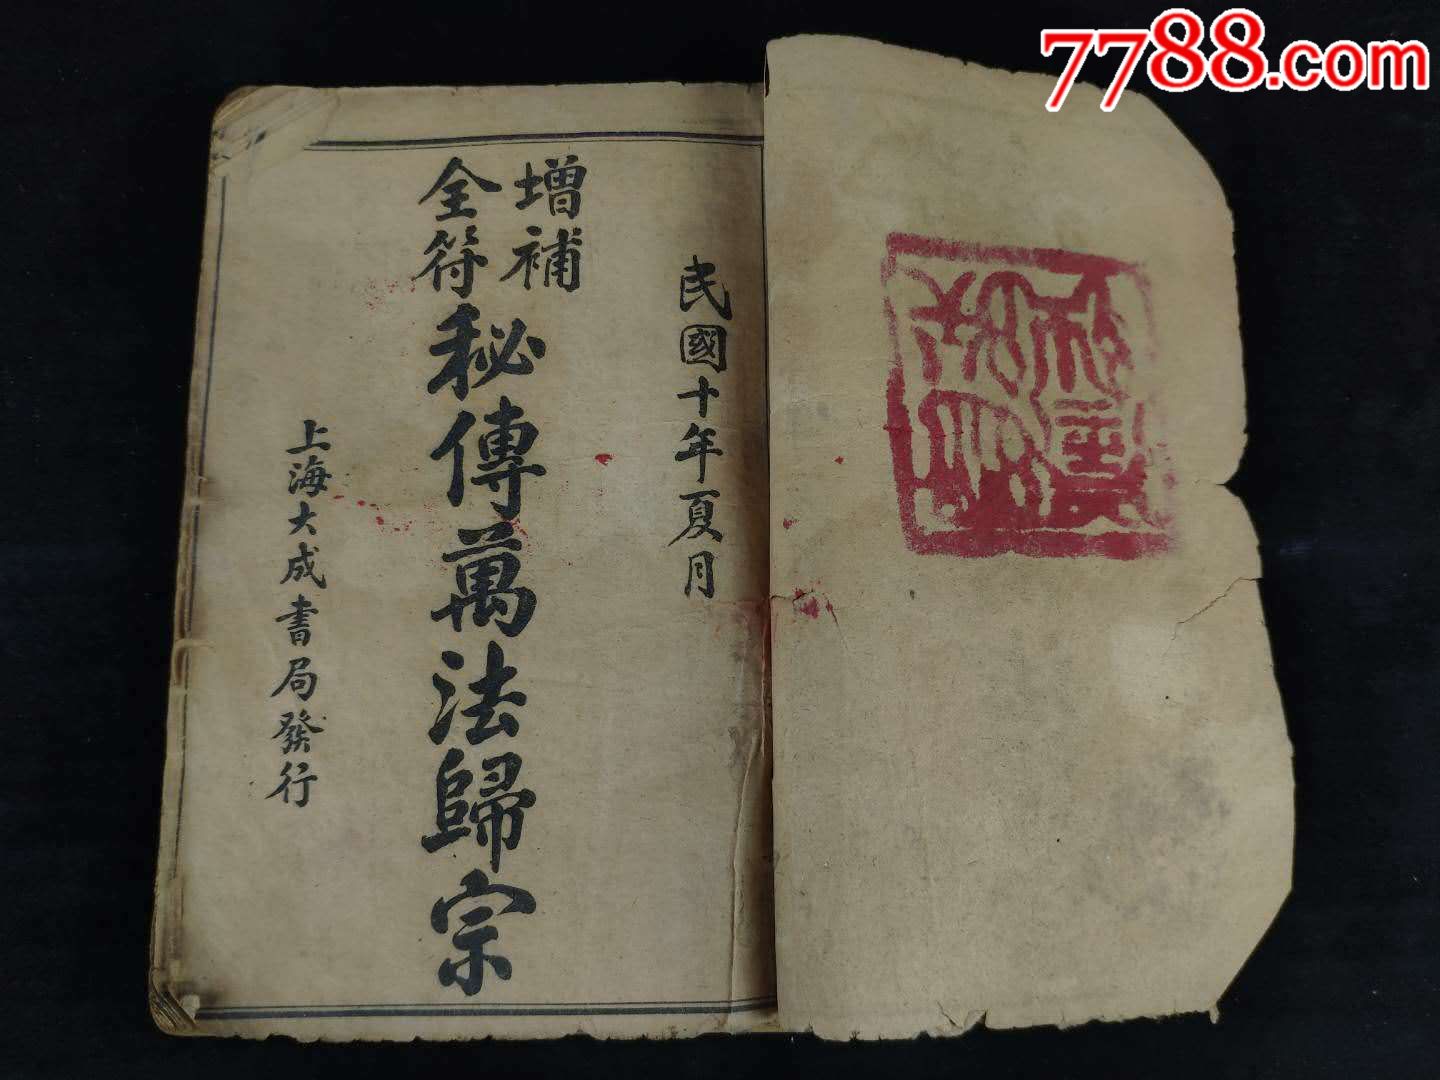 7788.com
民國十年夏月
增補
全符
秘傳萬法歸宗
上海大成書局發行